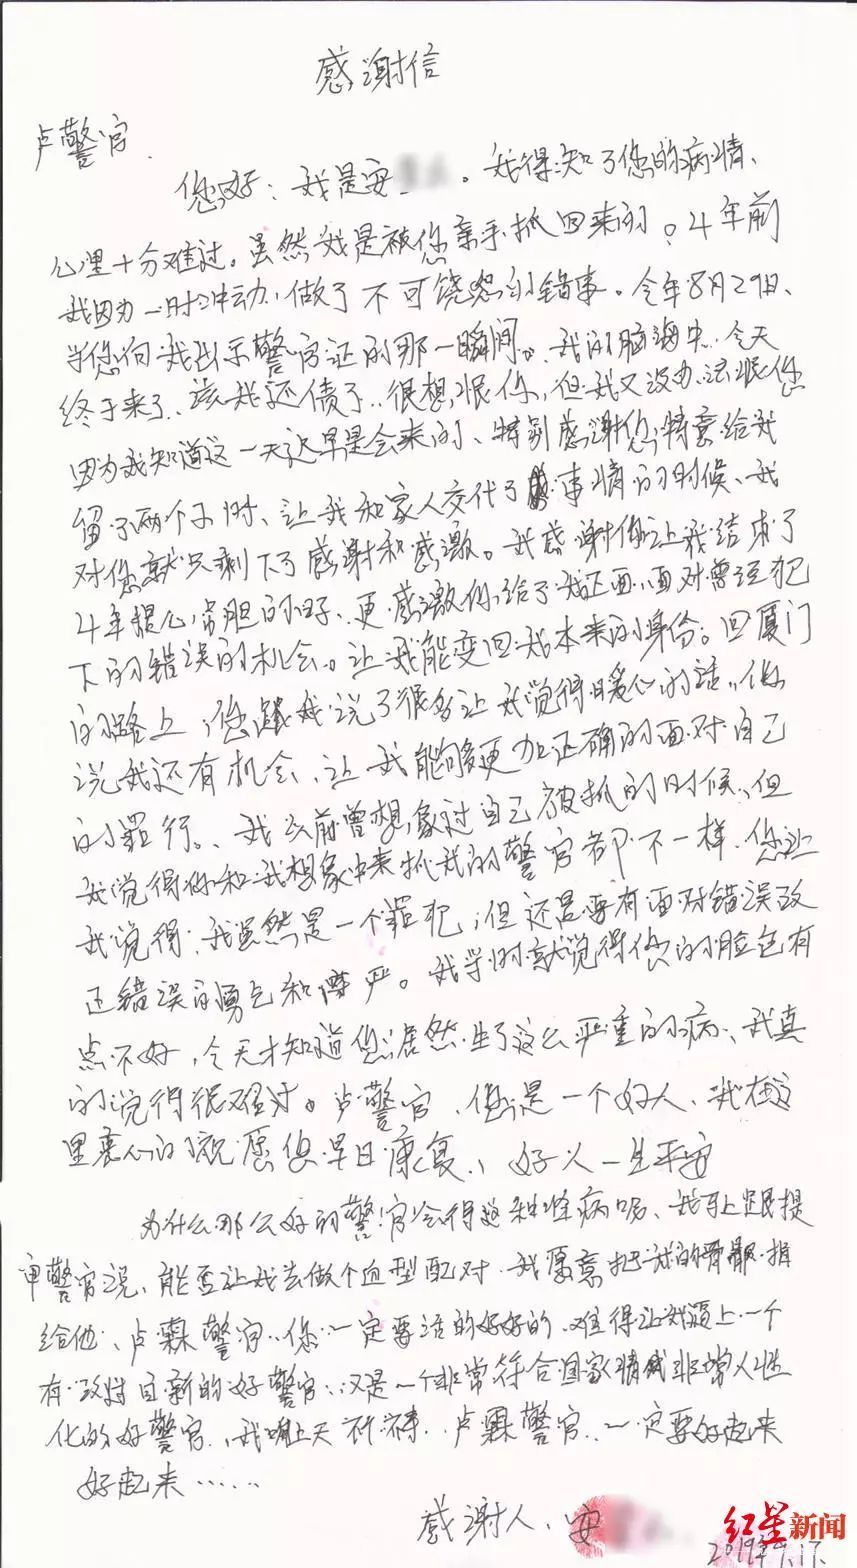 感谢信
卢警官.
您好：我是安 。我得知了您的病情、
心里十分难过。虽然我是被您亲手抓回来的。4年前
我因为一时冲动，做了不可饶恕的错事。今年8月29日、
当您向我出示警官证的那一瞬间。我的脑海中..今天
终于来了、该我还债了..很想恨你，但我又没办法恨您
因为我知道这一天迟早是会来的、特别感谢您特意给我
留了两个小时、让我和家人交代了事情的时候、我
对您就只剩下了感谢和感激。我感谢你让我结束了
4年提心吊胆的日子、更感激你给了我正面，面对曾经犯
下的错误的机会。让我能变回我本来的身份。回厦门
的路上，您跟我说了很多让我觉得暖心的话，你
说我还有机会、让我能够更加正确的面对自己
的罪行。、我以前曾想象过自己被抓的时候、但
我觉得你和我想象中来抓我的警官都不一样、您让
我觉得，我虽然是一个罪犯，但还是要有面对错误改
正错误的勇气和尊严。我当时就觉得您的脸色有
点不好，今天才知道您居然生了这么严重的病、我真
的觉得很难过。卢警官、您是一个好人、我在这
里衷心的祝愿您早日康复、好人一生平安
为什么那么好的警官会得这种怪病呢、我马上跟提
审警官说、能否让我去做个血型配对、我愿意把我的骨髓捐
给他、卢霖警官..你一定要活的好好的、难得让我逼上一个
有改特自新的好警官..又是一个非常符合国家情感非常人性
化的好警官、我嘲上天祈祷..卢霖警官..一定要好起来
好起来……
感谢人、安
2019年9.17.
红星新闻